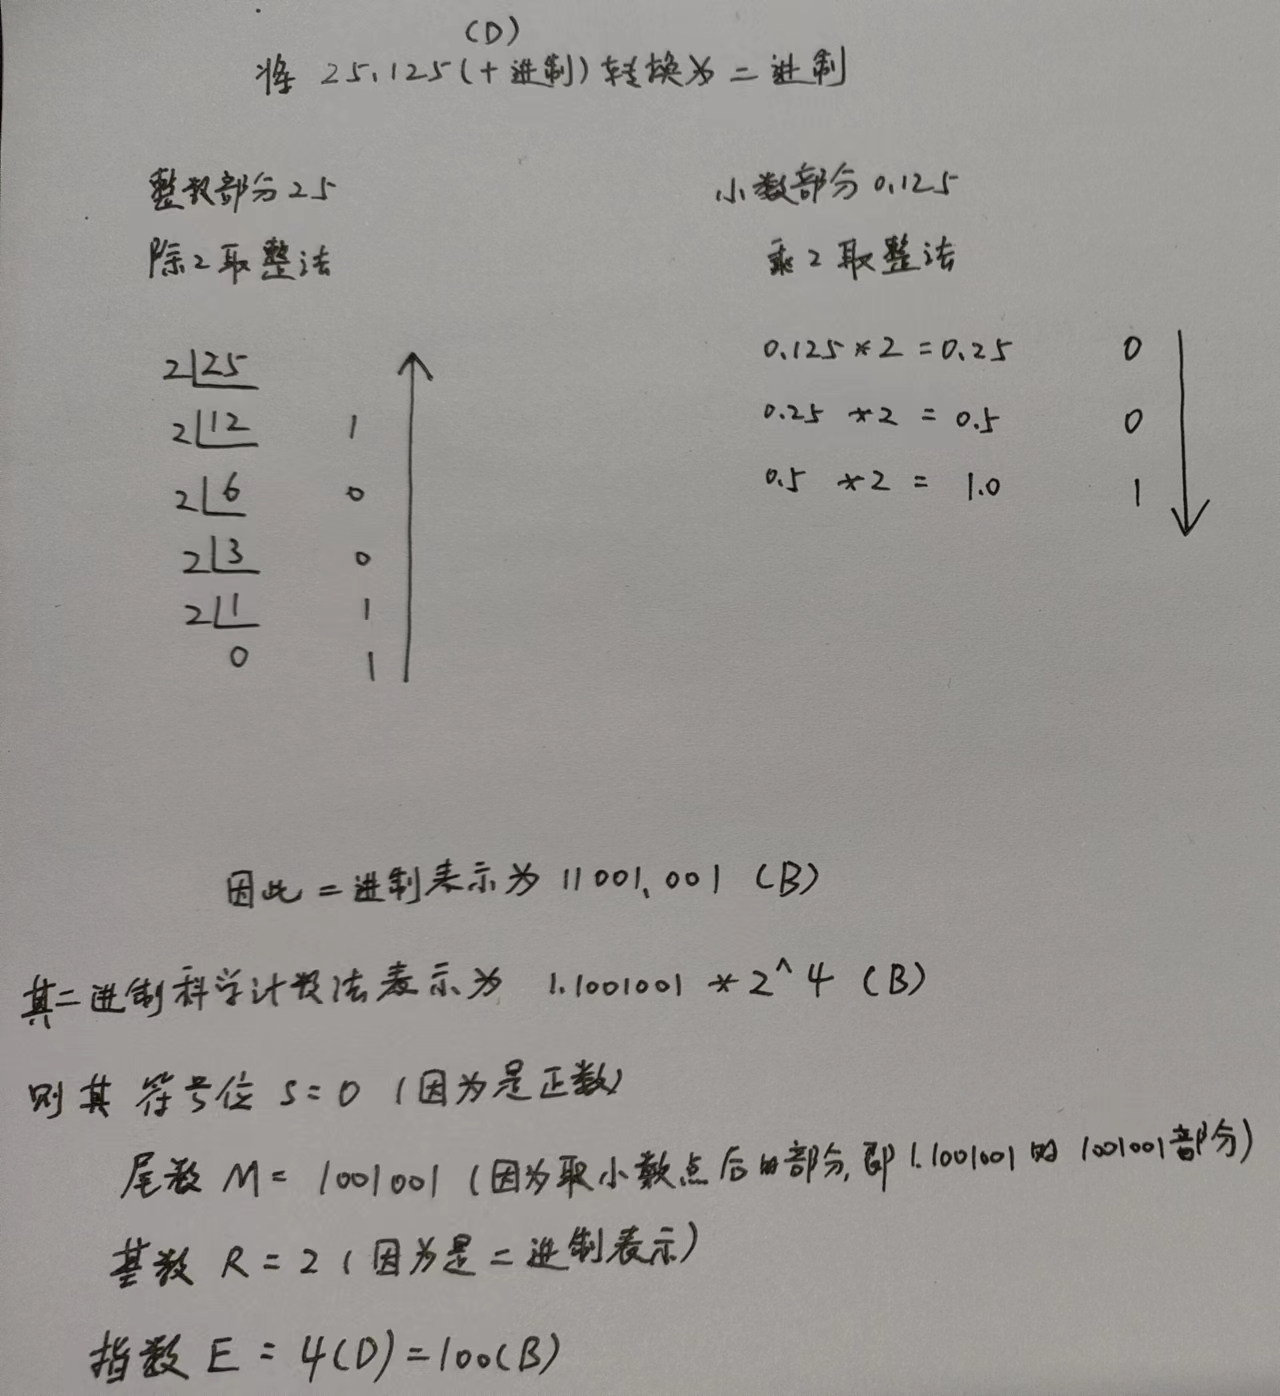 (D)
将 25.125(十进制)转换为二进制
整数部分25
除2取整法
2 25
2 12 1
2 6 0
2 3 0
2 1 1
0 1
小数部分 0.125
乘2取整法
0.125*2=0.25 0
0.25 *2 = 0.5 0
0.5 *2 = 1.0 1
因此二进制表示为 11001.001 (B)
其二进制科学计数法表示为 1.1001001 * 2^4 (B)
则其 符号位 S=0 (因为是正数)
尾数 M= 1001001 (因为取小数点后的部分,即1.1001001的1001001部分)
基数 R=2(因为是二进制表示)
指数 E = 4(D)=100(B)